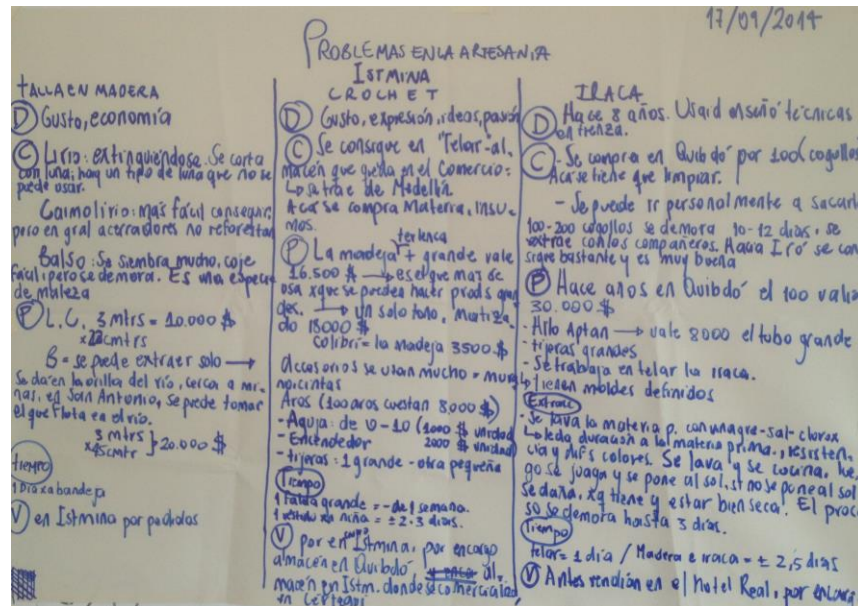 17/09/2014
PROBLEMAS EN LA ARTESANIA
ISTMINA
TALLA EN MADERA
D Gusto, economía
C Lirio: extinguiéndose. Se corta
con luna; hay un tipo de luna que no se
puede usar.
Caimolirio: más fácil conseguir,
pero en gral acerradores no reforestan
Balso: Se siembra mucho, coje
fácil, pero se demora. Es una especie
de maleza
P L.C. 3 mtrs = 10.000 $
cmtrs
B = se puede extraer solo →
Se da en la orilla del río, cerca a mi-
nas, en San Antonio, se puede tomar
el que flota en el río.
3 mtrs
x 45 cmtr } 20.000 $
tiempo
1 Dia x a bandeja
V en Istmina por pedidos
CROCHET
D Gusto, expresión, ideas, pasión
C Se consigue en "Telar" al-
macén que queda en el Comercio:
↳ se trae de Medellín.
Acá se compra Materia, insu-
mos.
terlenca
P La madeja + grande vale
16.500 $ → es el que mas se
usa xque se pueden hacer prods gran
des. → un solo tono, matiza-
do 18000 $
Colibri = la madeja 3500 $
Accesorios se utan mucho =
no, cintas
Aros (100 aros cuestan 8.000 $)
- Aguja: de 0-10 (1000 $ unidad
- Encendedor 2000 $ unidad)
- tijeras: 1 grande - otra pequeña
Tiempo
1 Falda grande = - de 1 semana.
1 vestido xa niña = ± 2-3 dias.
V por en Istmina, por encargo
almacén en Quibdó al-
macén en Istm. donde se comercializa
en Cértegui
IRACA
D Hace 8 años. Usaid enseñó técnicas
en trenza.
C - Se compra en Quibdó por 100 cogollos
Acá se tiene que limpiar.
- Se puede ir personalmente a sacarla
100-200 cogollos se demora 10-12 dias, se
extrae con los compañeros. Hacia Iró se con
sigue bastante y es muy buena
P Hace años en Quibdó el 100 valía
30.000 $
- Hilo Aptan → vale 8000 el tubo grande
- tijeras grandes
- Se trabaja en telar la iraca.
↳ tienen moldes definidos
Extrac
- Se lava la materia p. con vinagre-sal-clorox
↳ le da duración a la materia prima, resisten-
cia y difs colores. Se lava y se cocina, lue
go se juaga y se pone al sol, si no se pone al sol
se daña, xq tiene q estar bien seca. El proce
so se demora hasta 3 dias.
Tiempo
telar = 1 dia / Madera e iraca = ± 2,5 dias
V Antes vendían en el hotel Real, por encarg